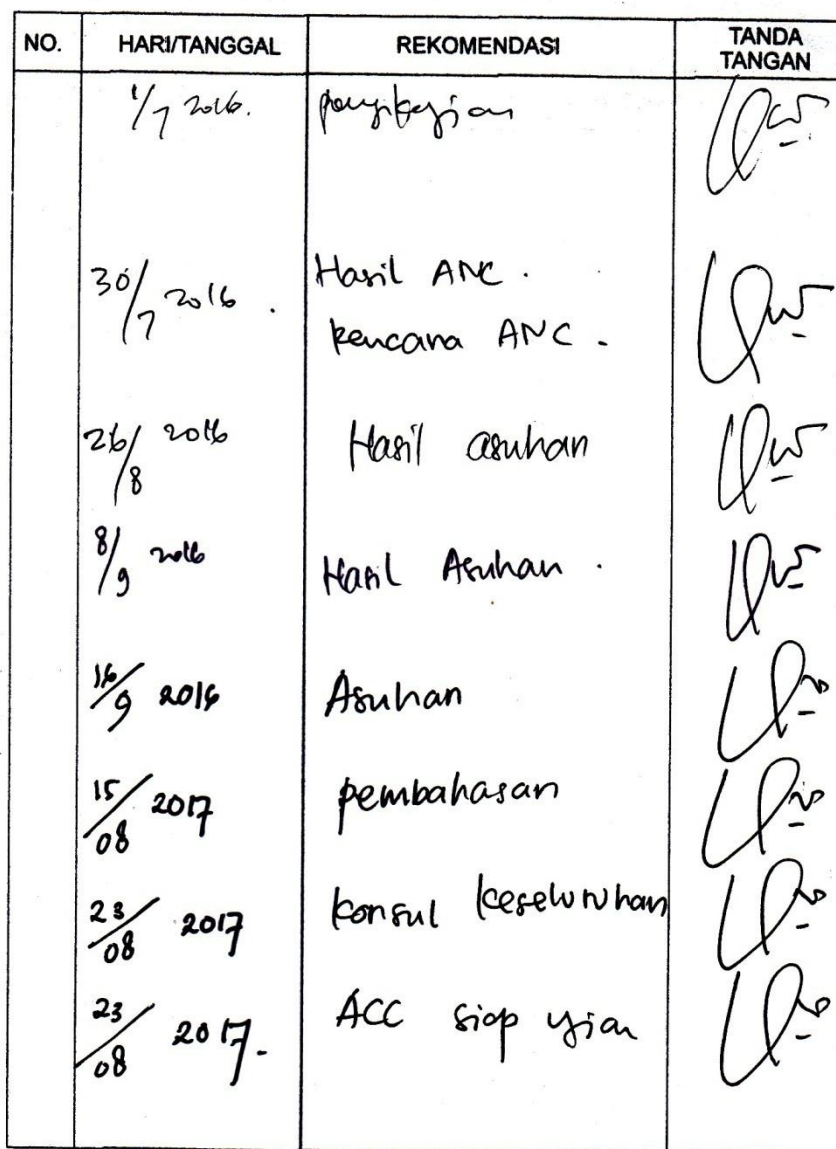 NO. HARI/TANGGAL REKOMENDASI TANDA TANGAN
1/7 2016. pengkajian
30/7 2016. Hasil ANC.
Rencana ANC.
26/8 2016 Hasil asuhan
8/9 2016 Hasil Asuhan.
16/9 2016 Asuhan
15/08 2017 pembahasan
23/08 2017 Konsul keseluruhan
23/08 2017. ACC siap ujian